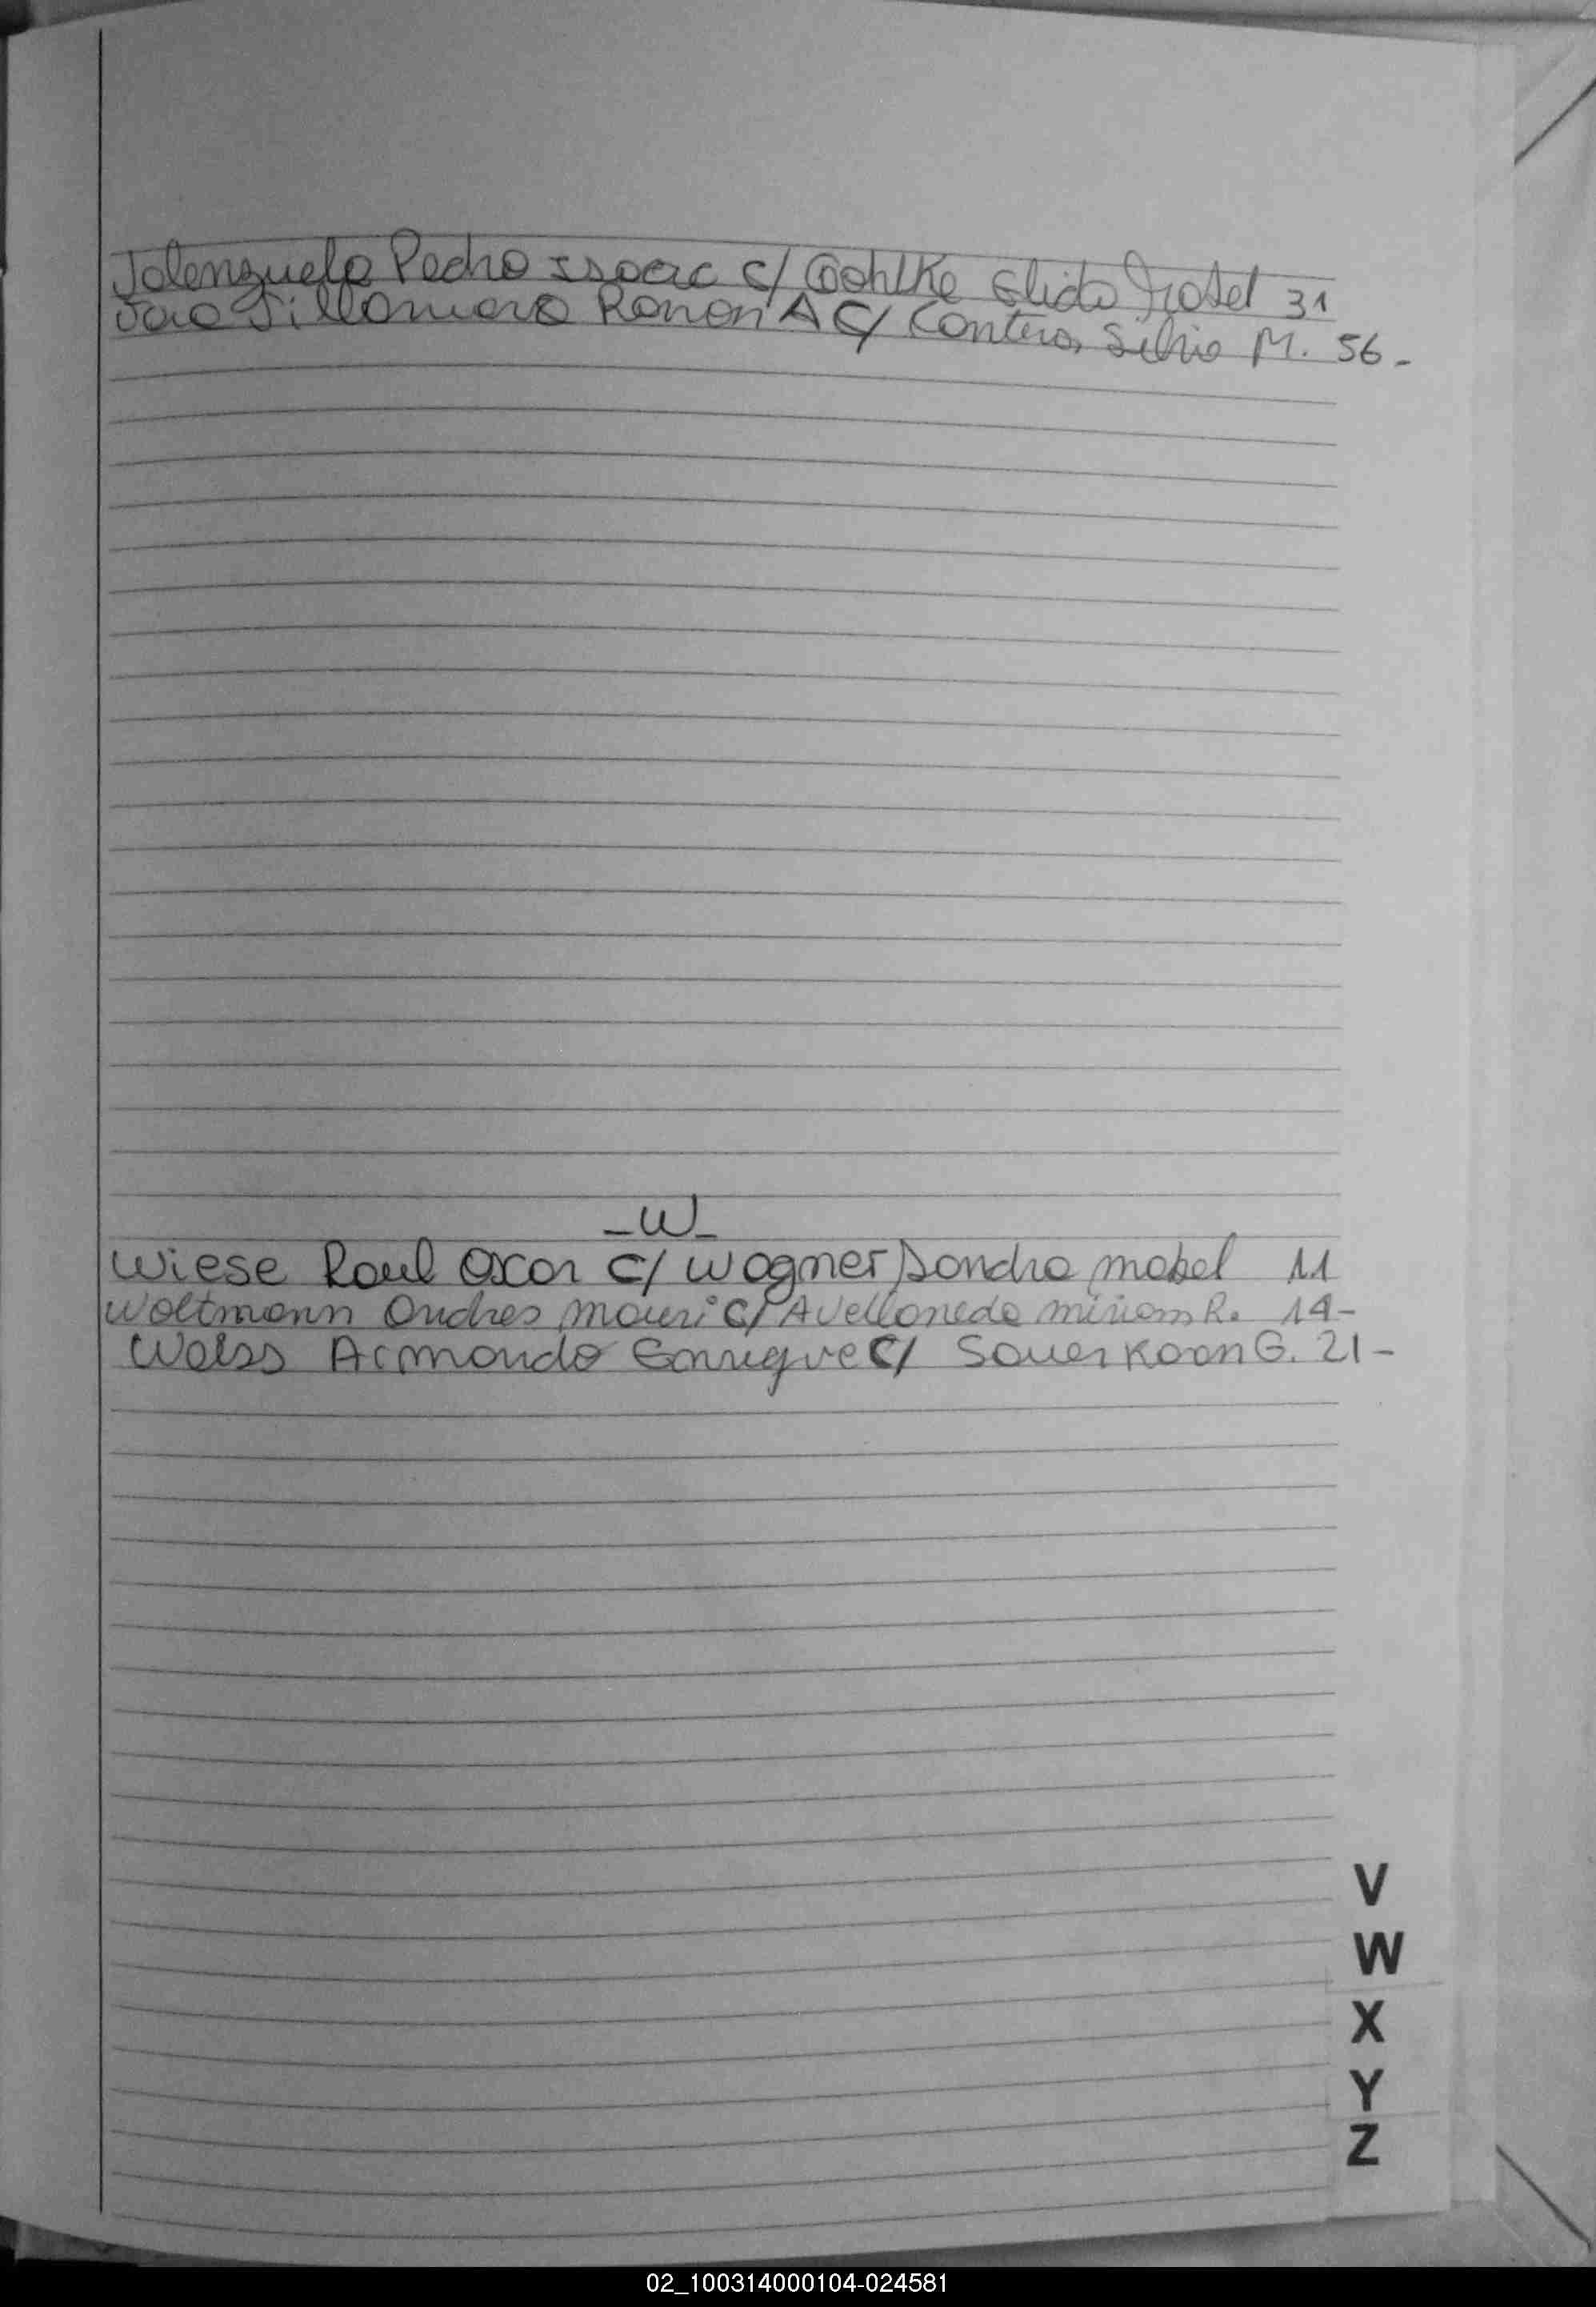 Valenzuela Pedro Isaac c/ Gohlke Elida Isabel 31
Villamero Ramon A c/ Contera, Silvia M. 56-
-W-
Wiese Raul Oscar c/ Wagner Sandra mabel 11
Woltmann Andres Mauri c/ Avellaneda miriam R. 14-
Weiss Armando Enrique c/ Sauer Karen G. 21-
V
W
X
Y
Z
02_100314000104-024581